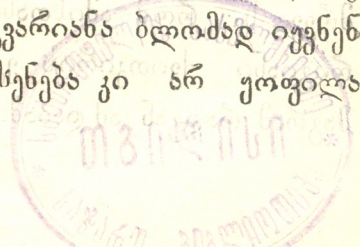 ვარიანა ბლომად იყვნენ
სენება კი არ ყოფილა
თბილისი